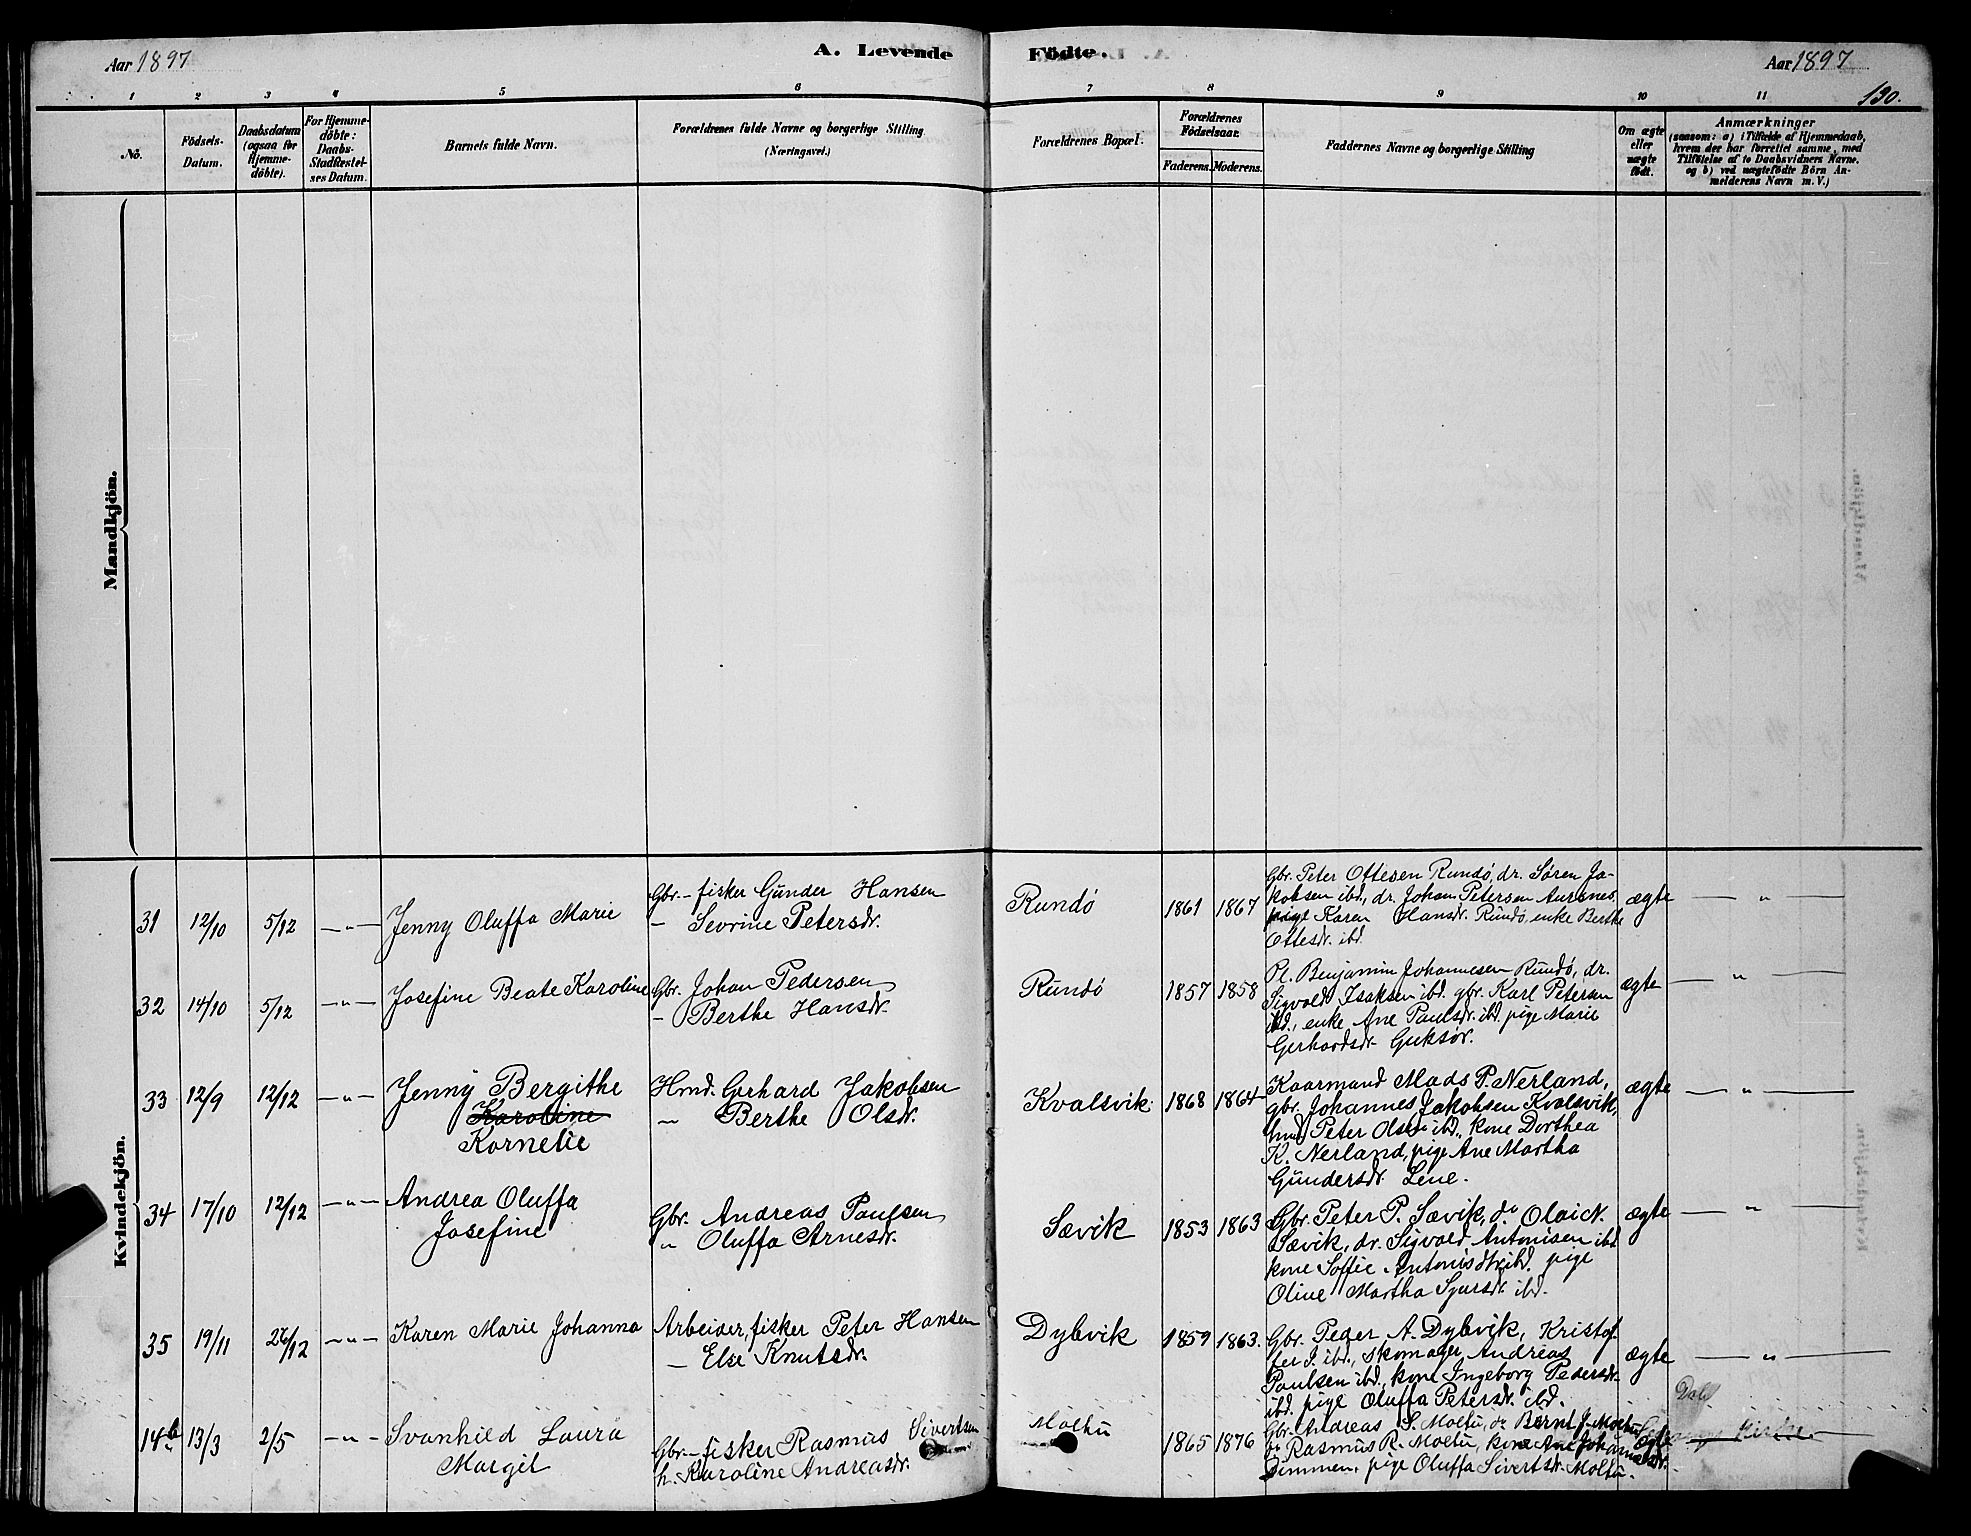 Aar 1897
A. Levende Födte.
Aar 1897
190.
1 2 3 4 5 6 7 8 9 10 11
No.
Födsels-
Datum.
Daabsdatum
(ogsaa for
Hjemme-
döbte).
For Hjemme-
döbte:
Daabs-
Stadfæstel-
ses Datum.
Barnets fulde Navn.
Forældrenes fulde Navne og borgerlige Stilling
(Næringsvei.)
Forældrenes Bopæl.
Forældrenes
Födselsaar.
Faderens. Moderens.
Faddernes Navne og borgerlige Stilling
Om ægte
eller
uægte
födt.
Anmærkninger
(saasom: a) i Tilfælde af Hjemmedaab,
hvem der har forrettet samme, med
Tilföielse af to Daabsvidners Navne.
og b) ved uægtefödte Börn An-
melderens Navn m. V.)
Mandkjön.
Kvindekjön.
31 12/10 5/12 — " — Jenny Oluffa Marie
Gbr.- fisker Gunder Hansen
— Sevrine Petersdr.
Rundö 1861 1867
Gbr. Peter Ottesen Rundö, dr. Sören Ja-
kobsen ibd., dr. Johan Petersen Aursnes,
pige Karen Hansdr. Rundö, enke Berthe
Ottesdr. ibd.
ægte — " —
32 14/10 5/12 — " — Josefine Beate Karoline
Gbr. Johan Pedersen
— Berthe Hansdr.
Rundö 1857 1858
Pl. Benjamin Johannesen Rundö, dr.
Sigvald Isaksen ibd. gbr. Karl Petersen
ibd., enke Ane Paulsdr. ibd. pige Marie
Gerhardsdr.
ægte — " —
33 12/9 12/12 — " — Jenny Bergithe
Karoline
Kornelie
Hmd. Gerhard Jakobsen
— Berthe Olsdr.
Kvalsvik 1868 1864
Kaarmand Mads P. Nerland,
gbr. Johannes Jakobsen Kvalsvik,
hmd Peter Olsen ibd., kone Dorthea
K. Nerland, pige Ane Martha
Gundersdr. Lene.
ægte — " —
34 17/10 12/12 — " — Andrea Oluffa
Josefine
Gbr. Andreas Paulsen
" Oluffa Arnesdr.
Sævik 1853 1863
Gbr. Peter P. Sævik, do Olai N.
Sævik, dr. Sigvald Antonisen ibd
kone Soffie Antonisdtr ibd. pige
Oline Martha Sjursdr. ibd.
ægte — " —
35 19/11 26/12 — " — Karen Marie Johanna
Arbeider, fisker Peter Hansen
— Else Knutsdr.
Dybvik 1859 1863.
Gbr. Peder A. Dybvik, Kristof-
fer J. ibd., skomager Andreas
Paulsen ibd., kone Ingeborg Pedersdr.
ibd. pige Oluffa Petersdr. ibd.
ægte — " —
14b 13/3 2/5 — " — Svanhild Laura
Margit
Gbr.- fisker Rasmus Sivertsen
h. Karoline Andreasdr.
Moltu 1865 1876
Gbr. Andreas S. Moltu, do Bernt J. Moltu
do Rasmus R. Moltu, kone Ane Johannesdr.
Dimmen, pige Oluffa Sivertsdr. Moltu.
ægte